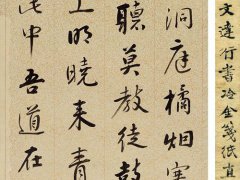 文達行書冷金箋紙直
洞庭橘烟寒
聽莫教徒鼓
上明曉來青
中吾道在